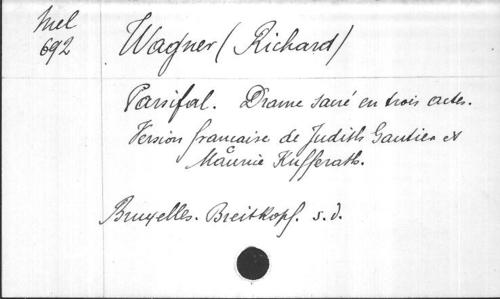 Mel
692
Wagner (Richard)
Parsifal. Drame sacré en trois actes.
Version francaise de Judith Gautier et
Maurice Kufferath.
Bruxelles. Breitkopf. s. d.